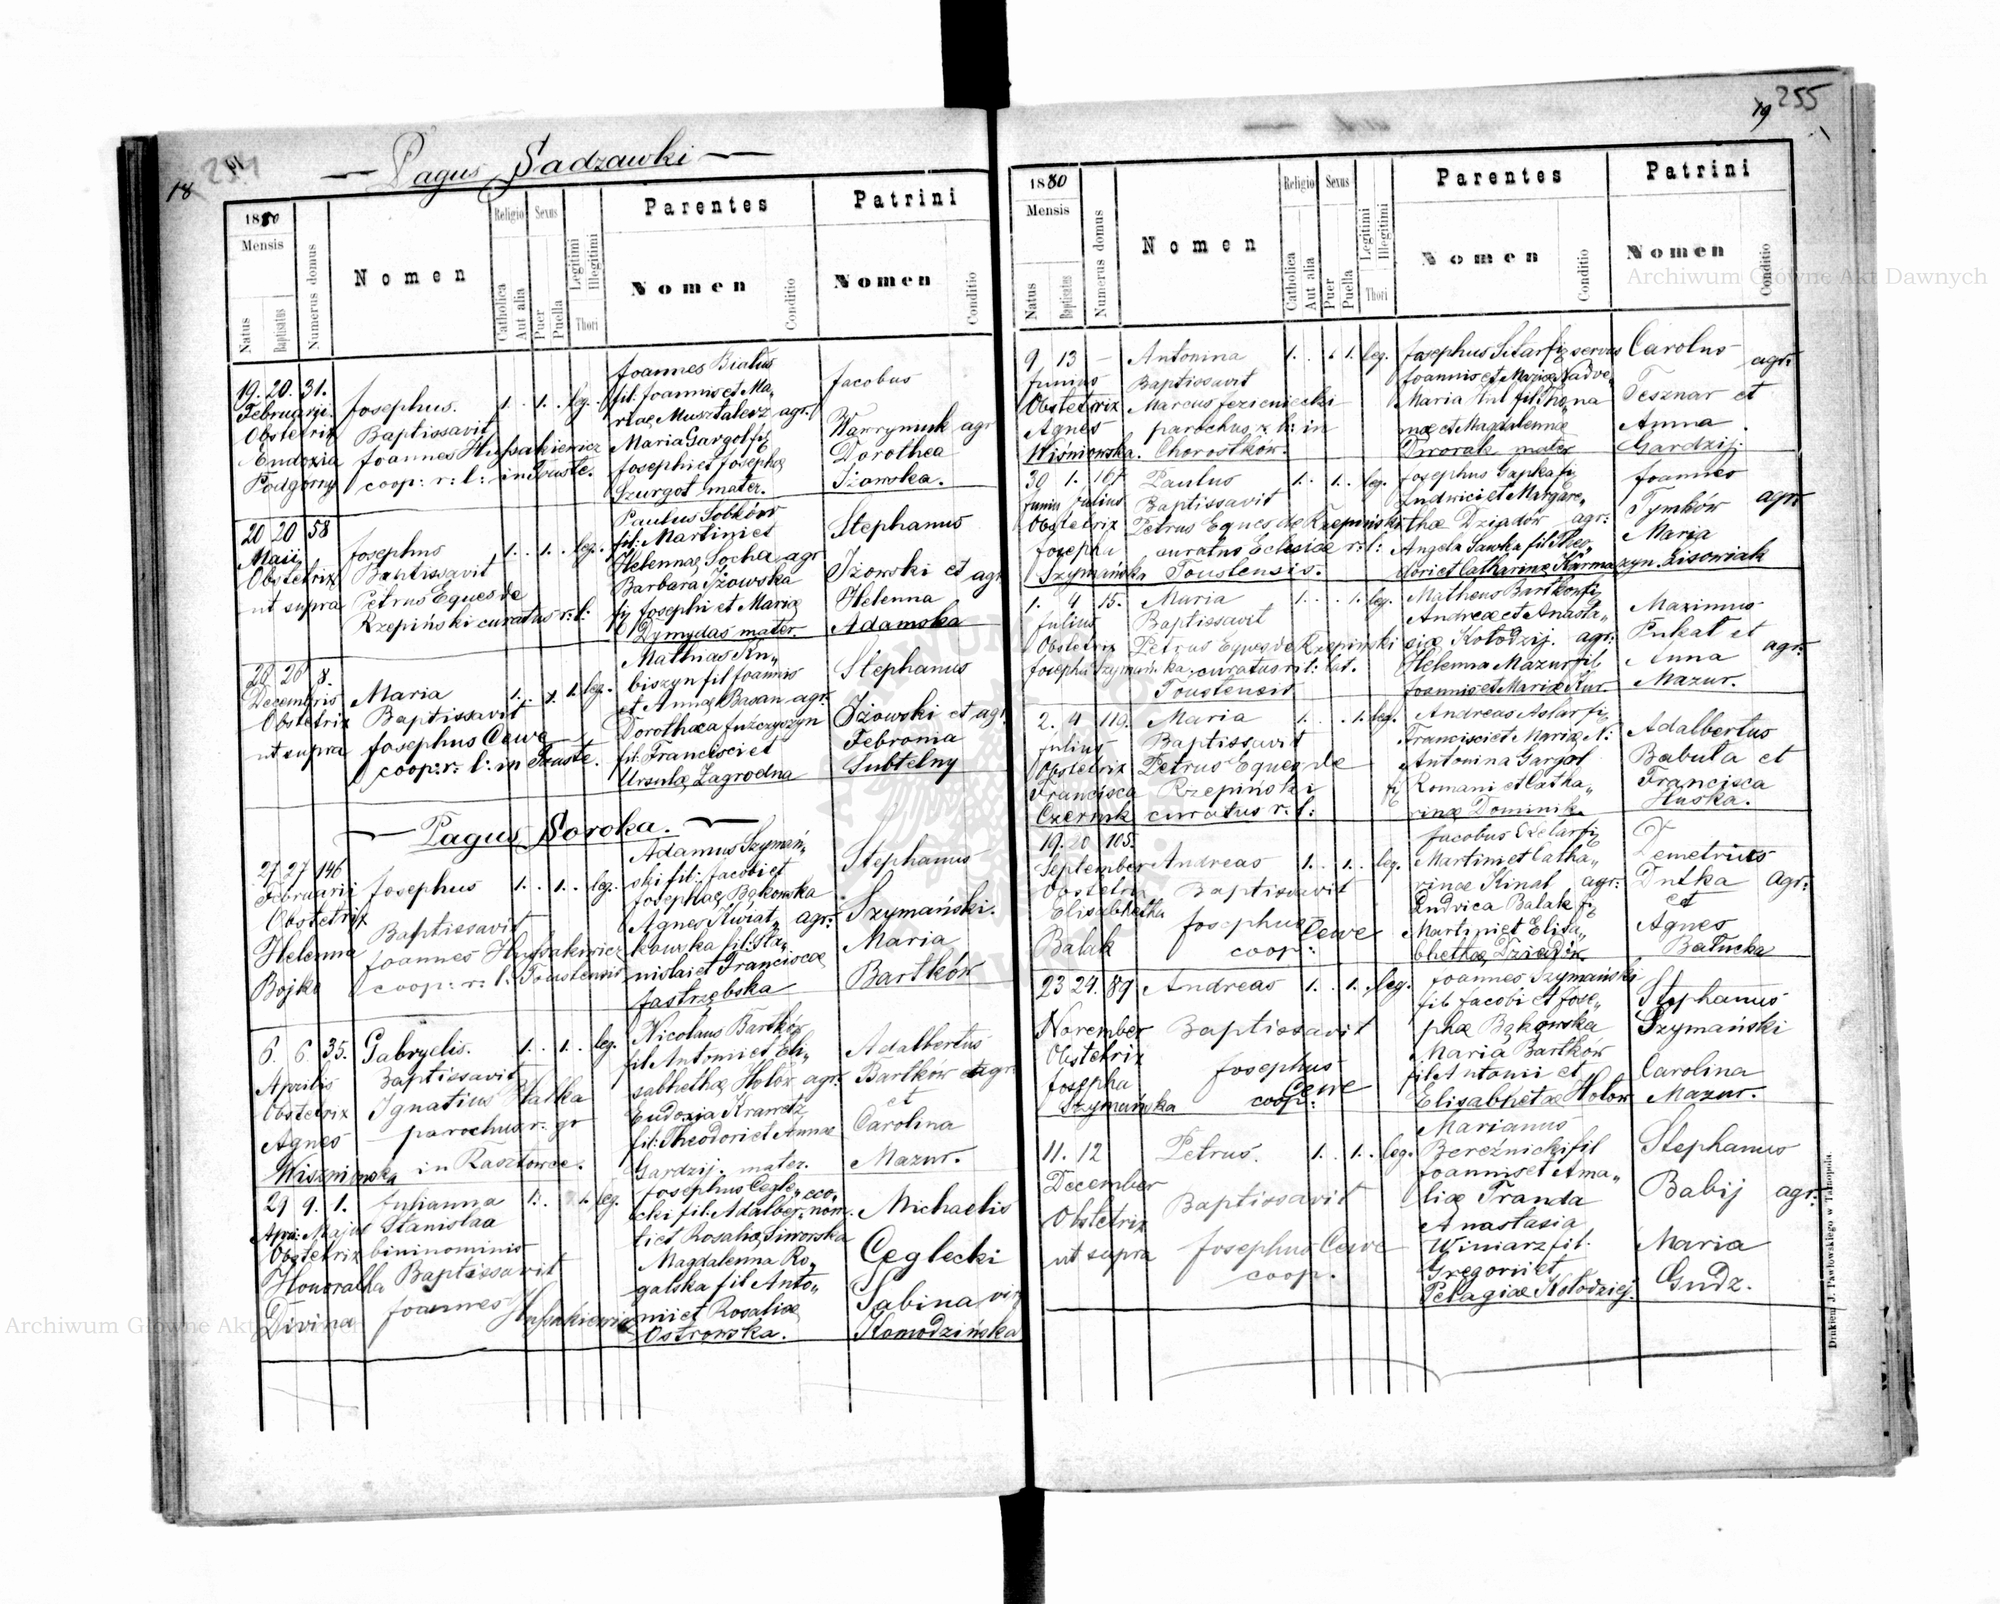 18
— Pagus Sadzawki —
1880
Mensis
Natus
Baptisatus
Numerus domus
Nomen
Religio
Catholica
Aut alia
Sexus
Puer
Puella
Legitimi
Illegitimi
Thori
Parentes
Nomen
Conditio
Patrini
Nomen
Conditio
19. 20. 31.
Februarii
Obstetrix
Eudoxia
Podgorny
Josephus.
Baptissavit
Joannes Hussakiewicz
coop: r: l: in Touste.
1. . 1. . leg.
Joannes Białus
fil: Joannis et Ma„
riae Musztalerz agr.
Maria Gargol fi
Josephi et Josephae
Szurgot mater.
Jacobus
Warrynuk agr
Dorothea
Iżowska.
20 20 58
Maii
Obstetrix
ut supra
Josephus
Baptissavit
Petrus Eques de
Rzepiński curatus r: l:
1. . 1. . leg.
Paulus Sobków
fil: Martini et
Helennae Socha agr
Barbara Iżowska
fi Josephi et Mariae
Dymydas mater
Stephanus
Iżowski et agr
Helenna
Adamska
26 26 8.
Decembris
Obstetrix
ut supra
Maria
Baptissavit
Josephus Cewe
coop: r: l: in Touste.
1. . . 1. leg.
Mathias Ku„
biszyn fil Joannis
et Annae Basan agr.
Dorothaea Juszczyszyn
fil: Francisci et
Ursulae Zagrodna
Stephanus
Iżowski et agr
Febronia
Subtelny
— Pagus Soroka. —
27 27 146
Februarii
Obstetrix
Helenna
Bojko
Josephus
Baptissavit
Joannes Hussakiewicz
coop: r: l: Toustensis
1. . 1. . leg.
Adamus Szymań„
ski fil: Jacobi et
Josephae Bąkowska
Agnes Kwiat„ agr:
kowska fil: Sta„
nislai et Franciscae
Jastrzębska
Stephanus
Szymański.
Maria
Bartków
6. 6. 35.
Aprilis
Obstetrix
Agnes
Wiszniowska
Gabryelis.
Baptissavit
Ignatius Hatka
parochus r: gr
in Rasztowce.
1. . 1. . leg.
Nicolaus Bartków
fil Antonii et Eli„
sabhethae Hołow agr.
Eudoxia Krawetz
fil: Theodori et Annae
Gardzij. mater.
Adalbertus
Bartków agr
et
Carolina
Mazur.
29 9. 1.
Apri: Majus
Obstetrix
Honoratha
Divina
Julianna
Stanislaa
bininominis
Baptissavit
Joannes Hussakiewicz
1. . . 1. leg.
Josephus Cegle„ eco„
cki fil: Adalber„ nom.
ti et Rosaliae Siworska
Magdalenna Ro„
galska fil Anto„
nii et Rosaliae
Ostrowska.
Michaelis
Ceglecki
Sabina vir
Komodzińska
19 255
1880
Mensis
Natus
Baptisatus
Numerus domus
Nomen
Religio
Catholica
Aut alia
Sexus
Puer
Puella
Legitimi
Illegitimi
Thori
Parentes
Nomen
Conditio
Patrini
Nomen
Conditio
9 13 —
Junius
Obstetrix
Agnes
Wiśniowska.
Antonina
Baptissavit
Marcus Jezienicki
parochus r: l: in
Chorostków.
1. . . 1. leg.
Josephus Sitar fi servus
Joannis et Mariae Nadwe„
Maria Ant fil Tho„ na
mae et Magdalennae
Dworak mater
Carolus agr.
Tesznar et
Anna
Gardzij
30 1. 167.
Junii Julius
Obstetrix
Josepha
Szymańska
Paulus
Baptissavit
Petrus Eques de Rzepiński
curatus Eclesiae r: l:
Toustensis.
1. . 1. . leg.
Josephus Gapka fi
Ludwici et Margare„
thae Dziadów agr:
Angela Sawka fil Theo„
dori et Catharinae Karmazyn.
Joannes
Tymków agr
Maria
Lisowiak
1. 4 15.
Julius
Obstetrix
Josepha Szymańska
Maria
Baptissavit
Petrus Eques de Rzepiński
curatus rit: lat.
Toustensis
1. . . 1. leg.
Matheus Bartków fi
Andreae et Anasta„
siae Kołodzij. agr:
Helenna Mazur fil
Joannis et Mariae Kur.
Maximus
Pukat et
Anna agr.
Mazur.
2. 4 119.
Julius
Obstetrix
Francisca
Czernik
Maria
Baptissavit
Petrus Eques de
Rzepiński
curatus r: l:
1. . . 1. leg.
Andreas Aslar fi
Francisci et Mariae N:
Antonina Gargol
fi Romani et Catha„
rinae Dominik.
Adalbertus
Babuła et
Francisca
Huska.
19. 20 105.
September
Obstetrix
Elisabhetha
Balak
Andreas
Baptissavit
Josephus Cewe
coop:
1. . 1. . leg.
Martini et Catha„
rinae Kinal agr:
Ludvica Balak fi
Martini et Elisa„
bhethae Dziadów
Demetrius
Dutka agr.
et
Agnes
Bałucka
23 24. 89
November
Obstetrix
Josepha
Szymańska
Andreas
Baptissavit
Josephus
Cewe
coop:
1. . 1. . leg.
Joannes Szymański
fil Jacobi et Jose„
phae Bąkowska
Maria Bartków
fil Antonii et
Elisabhetae Hołow
Stephanus
Szymański
Carolina
Mazur.
11. 12
December
Obstetrix
ut supra
Petrus.
Baptissavit
Josephus Cewe
coop.
1. . 1. . leg.
Marianus
Bereźnicki fil
Joannis et Ama„
liae Franda
Anastasia
Winiarz fil:
Gregorii et
Pelagiae Kołodziej.
Stephanus
Babij agr.
Maria
Gudz.
Drukiem J. Pawłowskiego w Tarnopolu.
Archiwum Główne Akt Dawnych
Archiwum Główne Akt Dawnych